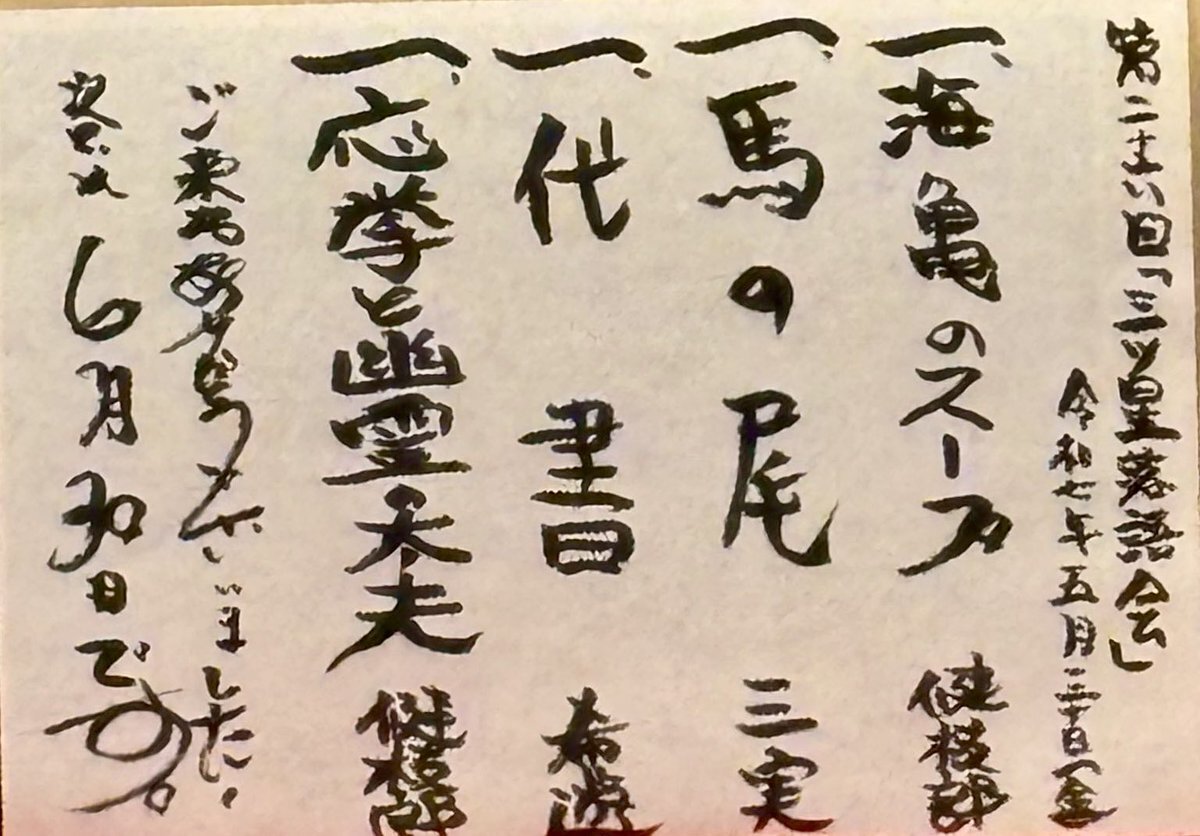 二十 回「三ツ星落語会」
令和七年五月三十日(金)
一、海亀のスープ 健枝郎
一、馬の尾 三実
一、代書 希遊
一、応挙と幽霊 夫 健枝郎
ご来場ありがとうございました。
次回は6月30日です。